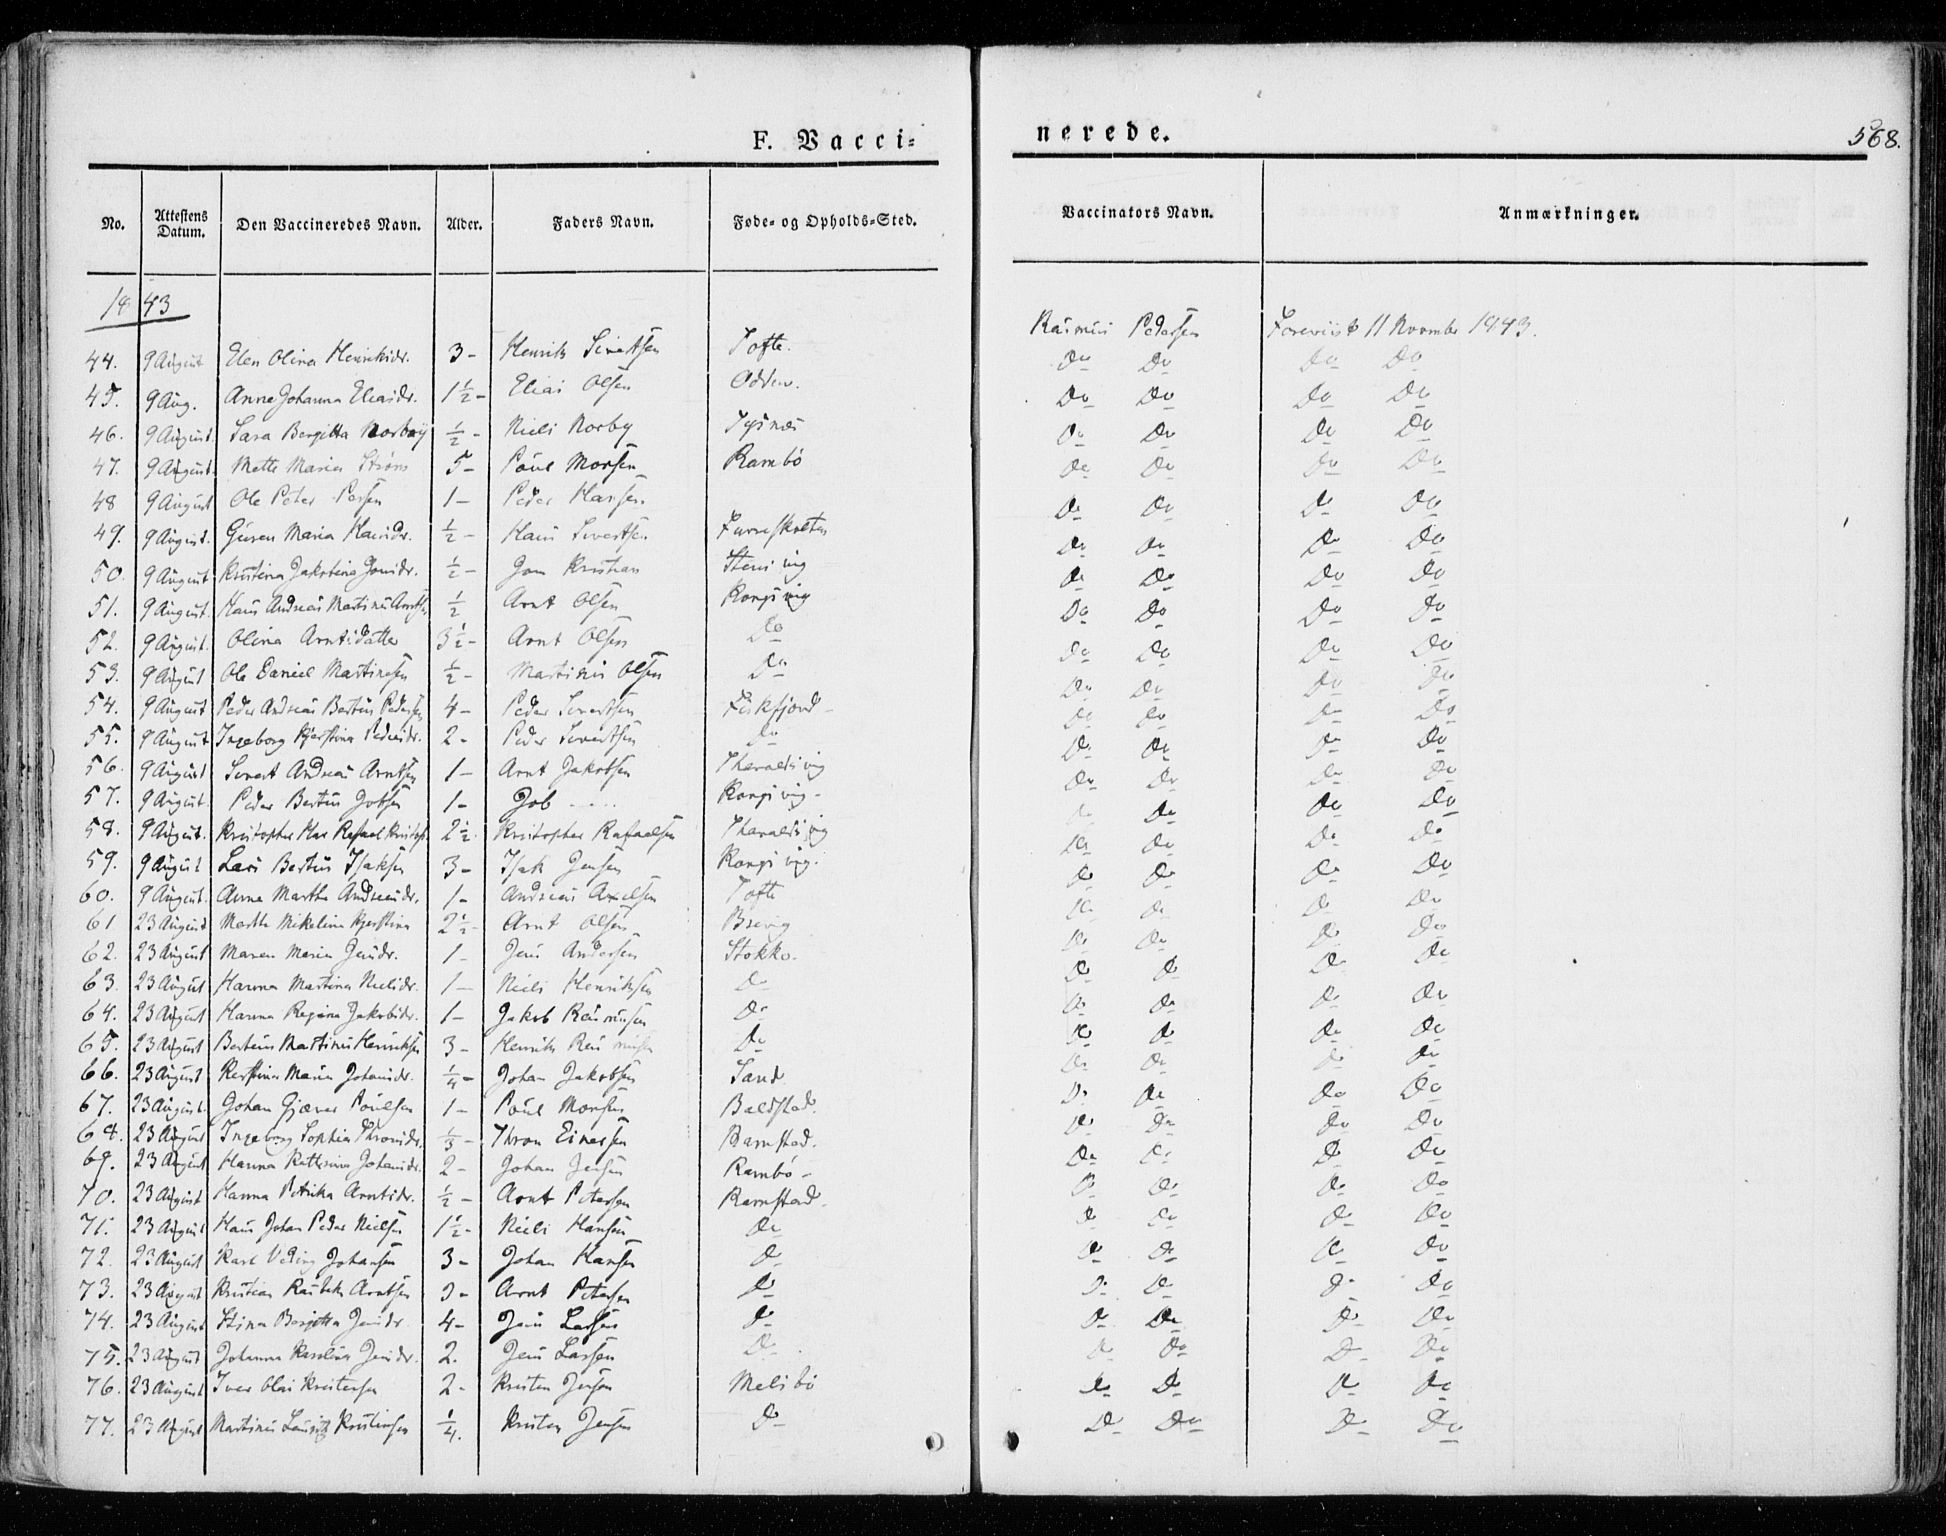 F. Vacci=
nerede.
568.
No. Attestens Datum. Den Vaccineredes Navn. Alder. Faders Navn. Føde- og Opholds-Sted. Vaccinators Navn. Anmærkninger.
1843
44. 9 August Elen Olina Henriksdr. 3 - Henrik Sivertsen Tofte. Rasmus Pedersen Foreviist 11 November 1843.
45. 9 Aug. Anne Johanna Eliasdr. 1½ - Elias Olsen Odden. Do Do Do Do
46. 9 August. Sara Bergitta Norbÿ ½ - Niels Norby Tysnæs Do Do Do Do
47. 9 August. Mette Maria Strøm 5 - Povel Monsen Rambö Do Do Do Do
48 9 August Ole Peter 1 - Peder Hansen Do Do Do Do
49. 9 August. Maria Hansdr. ½ - Hans Sivertsen Do Do Do Do
50. 9 August Kristina Jakobina ½ - Kristian Do Do Do Do
51. 9 August. Hans Andreas Martinus Arntsen ½ Arnt Olsen Do Do Do Do
52. 9 August. Olina Arntsdatter 3½ - Arnt Olsen Do Do Do Do Do
53. 9 August Ole Daniel Martinesen ½ - Martinus Olsen Do Do Do Do Do
54. 9 August Peder Andreas Bertus Pedersen 4 - Peder Sivertsen Fiskfjord - Do Do Do Do
55. 9 August Ingeborg Kjerstina Pedersdr. 2 - Peder Sivertsen Do Do Do Do Do
56. 9 August Sivert Andreas Arntsen 1 - Arnt Jakobsen Tharaldsvig Do Do Do Do
57. 9 August. Peder Bertus Jobsen 1 - Job - - - Do Do Do Do
58. 9 August. Kristopher Rafael 2½ - Kristopher Rafaelsen Tharaldsvig Do Do Do Do
59. 9 August Lars Bertus Isaksen 3 - Isak Jensen Do Do Do Do
60. 9 August. Anne Martha Andreasdr. 1 - Andreas Axelsen Tofte Do Do Do Do
61 23 August Martha Mikelina Kjerstina 2½ - Arnt Olsen Brevig Do Do Do Do
62. 23 August Maren Maria Jensdr. 1 - Jens Andersen Stokkø. Do Do Do Do
63. 23 August Hanna Martina Nielsdr. 1 - Niels Henriksen Do Do Do Do Do
64. 23 August Hanna Regina Jakobsdr. 1 - Jakob Rasmusen Do Do Do Do Do
65. 23 August Berteus Martinus Henriksen 3 - Henrik Rasmusen Do Do Do Do Do
66. 23 August Kerstina Maria Johansdr. ¼ - Johan Jakobsen Sand Do Do Do Do
67. 23 August. Johan Gjæver Povelsen 1 - Povel Monsen Baldstad. Do Do Do Do
68. 23 August Ingeborg Sophia Thronsdr. ⅓ - Thron Einersen Ramstad. Do Do Do Do
69. 23 August Hanna Johansdr. 2 - Johan Jensen Rambö - Do Do Do Do
70. 23 August Hanna Petrika Arntsdr. ½ - Arnt Petersen Ramstad. Do Do Do Do
71. 23 August Hans Johan Peder Nielsen 1½ - Niels Hansen Do Do Do Do Do
72. 23 August Karl Johansen 3 - Johan Hansen Do Do Do Do Do
73. 23 August Kristian Arntsen 3 - Arnt Petersen Do Do Do Do Do
74. 23 August Stina Bergitta Jensdr. 4 - Jens Larsen Do Do Do Do Do
75. 23 August Johanna Karolina Jensdr. 2. Jens Larsen Do Do Do Do Do
76. 23 August Iver Olai Kristensen 2 - Kristen Jensen Melsbö Do Do Do Do
77. 23 August Martinus Lauritz Kristensen ¼. Kristen Jensen Do Do Do Do Do